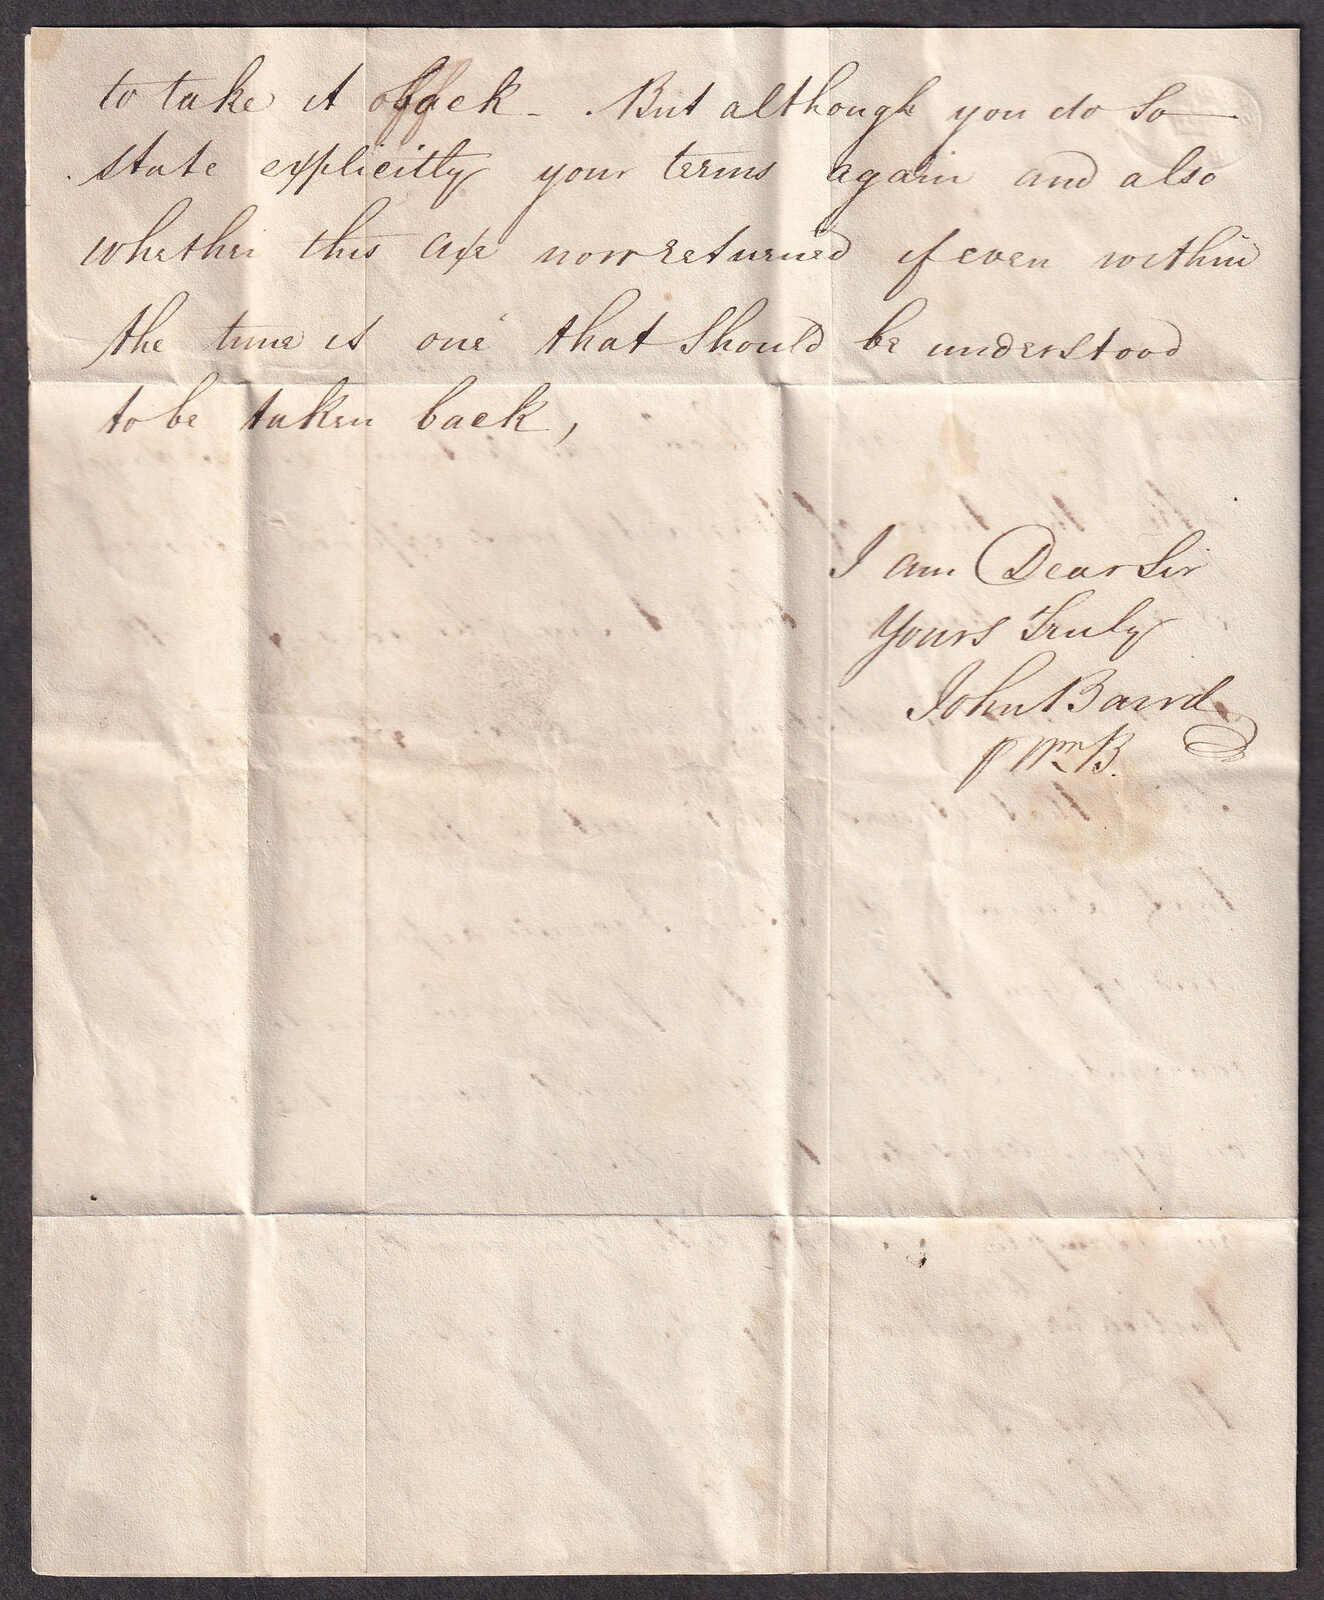 to take it back - But although you do so
state explicitly your terms again and also
whether this axe now returned if even within
the time is one that should be understood
to be taken back,
I am Dear Sir
Yours Truly
John Baird
p Wm B.